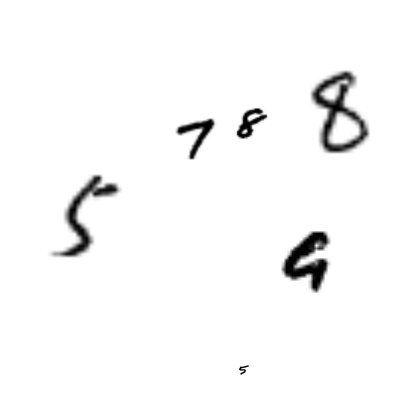 7 8 8
5
9
5